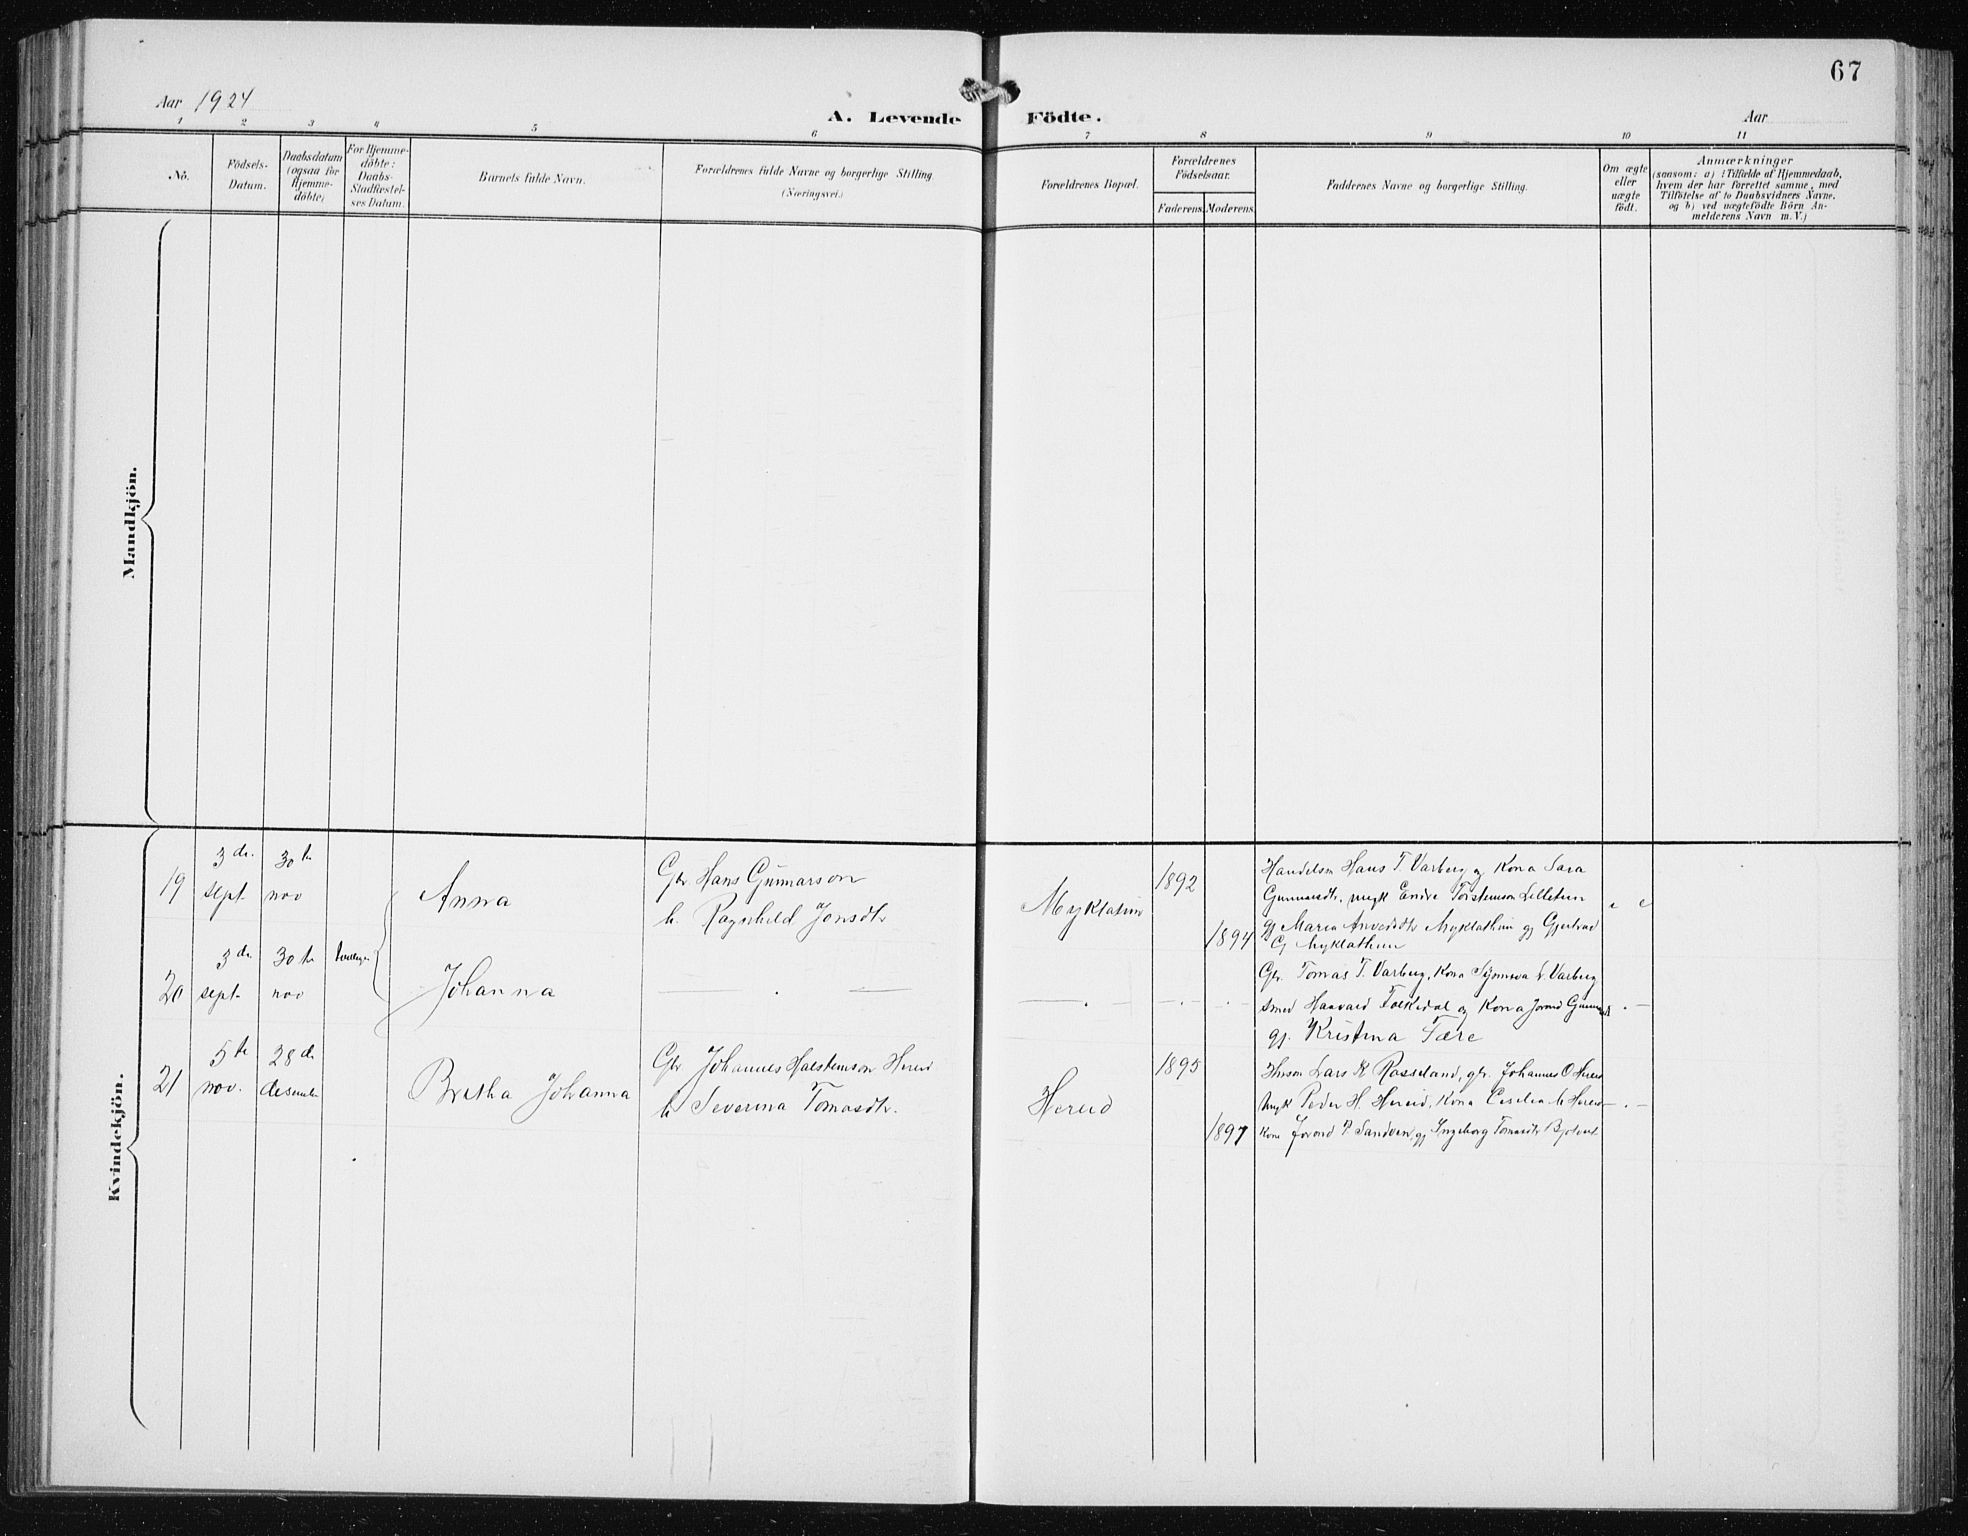 67
Aar 1924
A. Levende Födte.
Aar
1 2 3 4 5 6 7 8 9 10 11
No.
Födsels-
Datum.
Daabsdatum
(ogsaa for
Hjemme-
döbte)
For Hjemme-
döbte:
Daabs-
Stadfæstel-
ses Datum.
Barnets fulde Navn.
Forældrenes fulde Navne og borgerlige Stilling
(Næringsvei.)
Forældrenes Bopæl.
Forældrenes
Födselsaar.
Faderens. Moderens.
Faddernes Navne og borgerlige Stilling.
Om ægte
eller
uægte
födt.
Anmærkninger
(saasom: a) i Tilfælde af Hjemmedaab,
hvem der har forrettet samme, med
Tilföielse af to Daabsvidners Navne,
og b) ved uægtefödte Börn An-
melderens Navn m. V.)
Mandkjön.
Kvindekjön.
19
3 de
sept.
30 te
nov
Anna
Gbr. Hans Gunnarson
h. Ragnhild Jonsdtr
Myklatun
1892
1894
Handelsm Hans T. Varberg og Kona Sara
Gunnarsdtr, ungk Endre Torsteinson Lilletun
gj Maria Myklathun gj Gjertrud
G Myklathun
20
3 de
sept.
30 te
nov
Johanna
— . —
— . —
- . -
- . -
Gbr. Tomas T. Varberg, Kona Synneva L. Varberg
smed Haavard Folkedal og Kona Jorund
gj. Kristina Tære
. —
21
5 te
nov.
28 de
desember
Bretha Johanna
Gbr Johannes Halstenson Hereid
h Severina Tomasdtr.
Hereid
1895
1897
Lars K Rosseland, gbr. Johannes O Hereid
Ungk Peder H. Hereid, Kona Cecilia Hereid
Kona Jorund P. Sandven, gj Ingeborg Tomasdtr
— . —